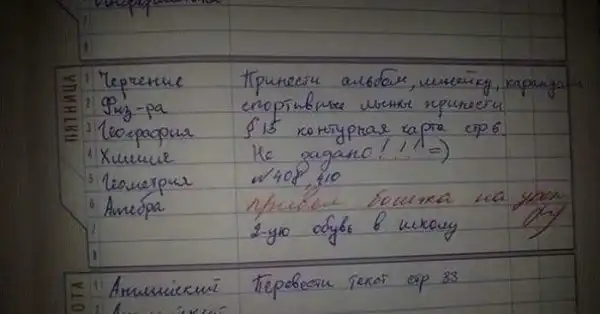 ПЯТНИЦА
1 Черчение Принести альбом, линейку, карандаш
2 Физ-ра спортивные лыжи принести
3 География § 15 контурная карта стр 6
4 Химия Не задано!!! =)
5 Геометрия №408, 410
6 Алгебра привёл бомжа на урок
7 2-ую обувь в школу
8
1 Английский Перевести текст стр 33